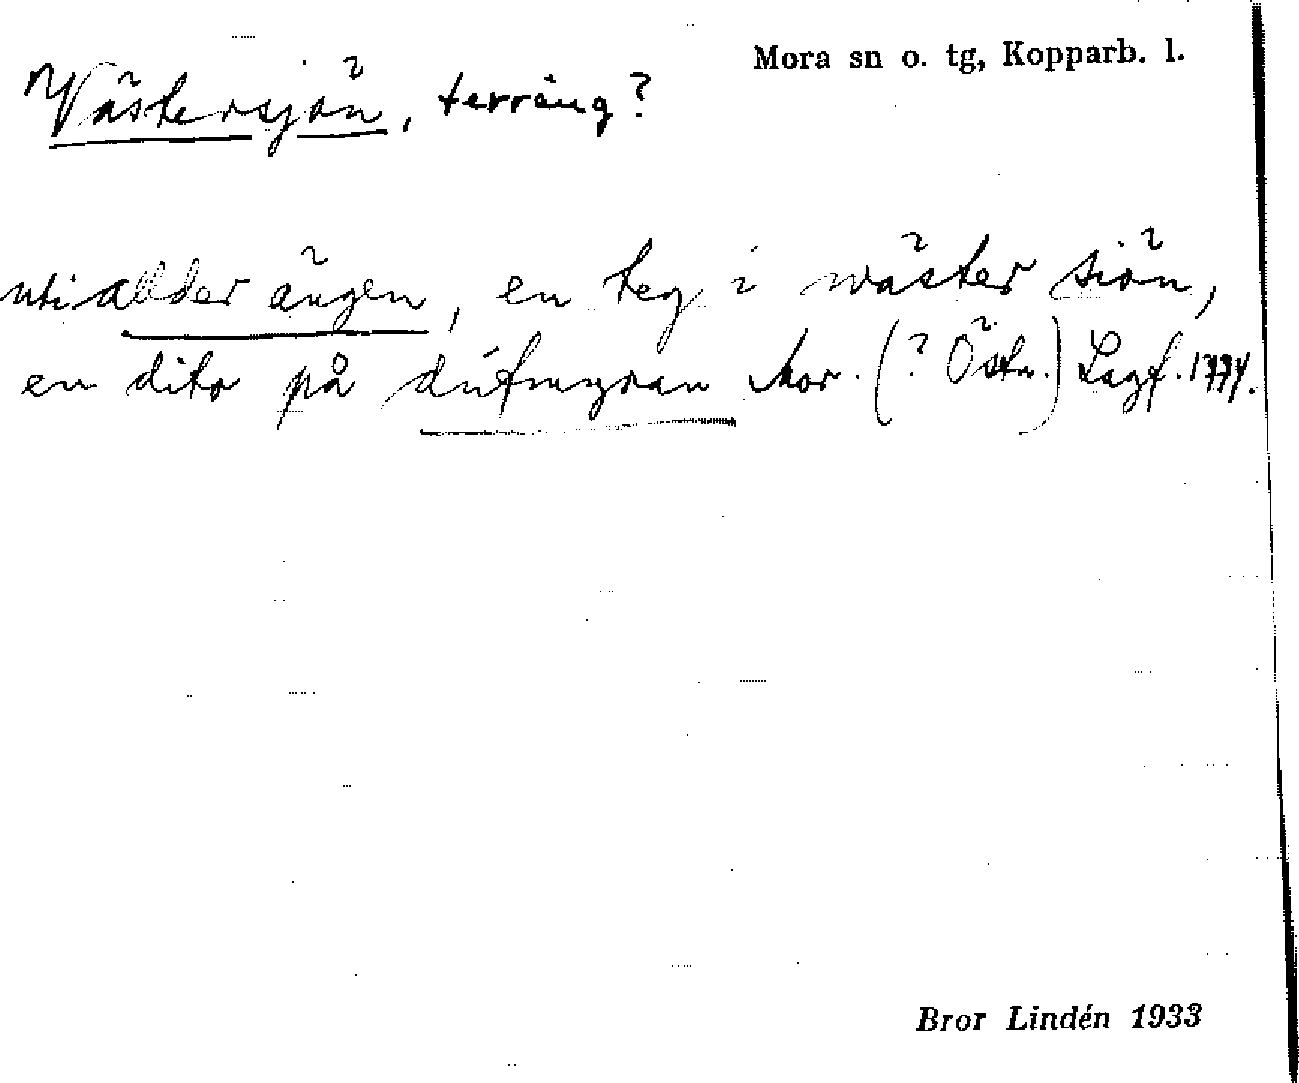 Mora sn o. tg, Kopparb. l.
Västersjön, terräng?
uti allder ängen, en teg i wäster siön,
en dito på dúfmyran Mor. (? Östn.) Lagf. 1774.
Bror Lindén 1933